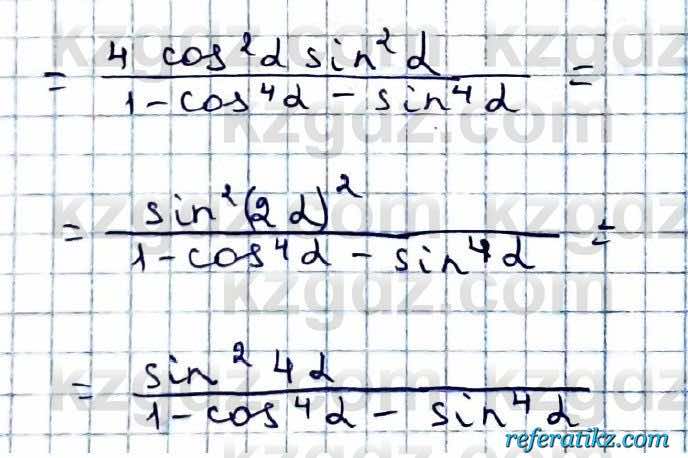 = 4 cos²α sin²α / 1 - cos⁴α - sin⁴α =
= sin²(2α)² / 1 - cos⁴α - sin⁴α =
= sin² 4α / 1 - cos⁴α - sin⁴α
kzgdz.com
referatikz.com